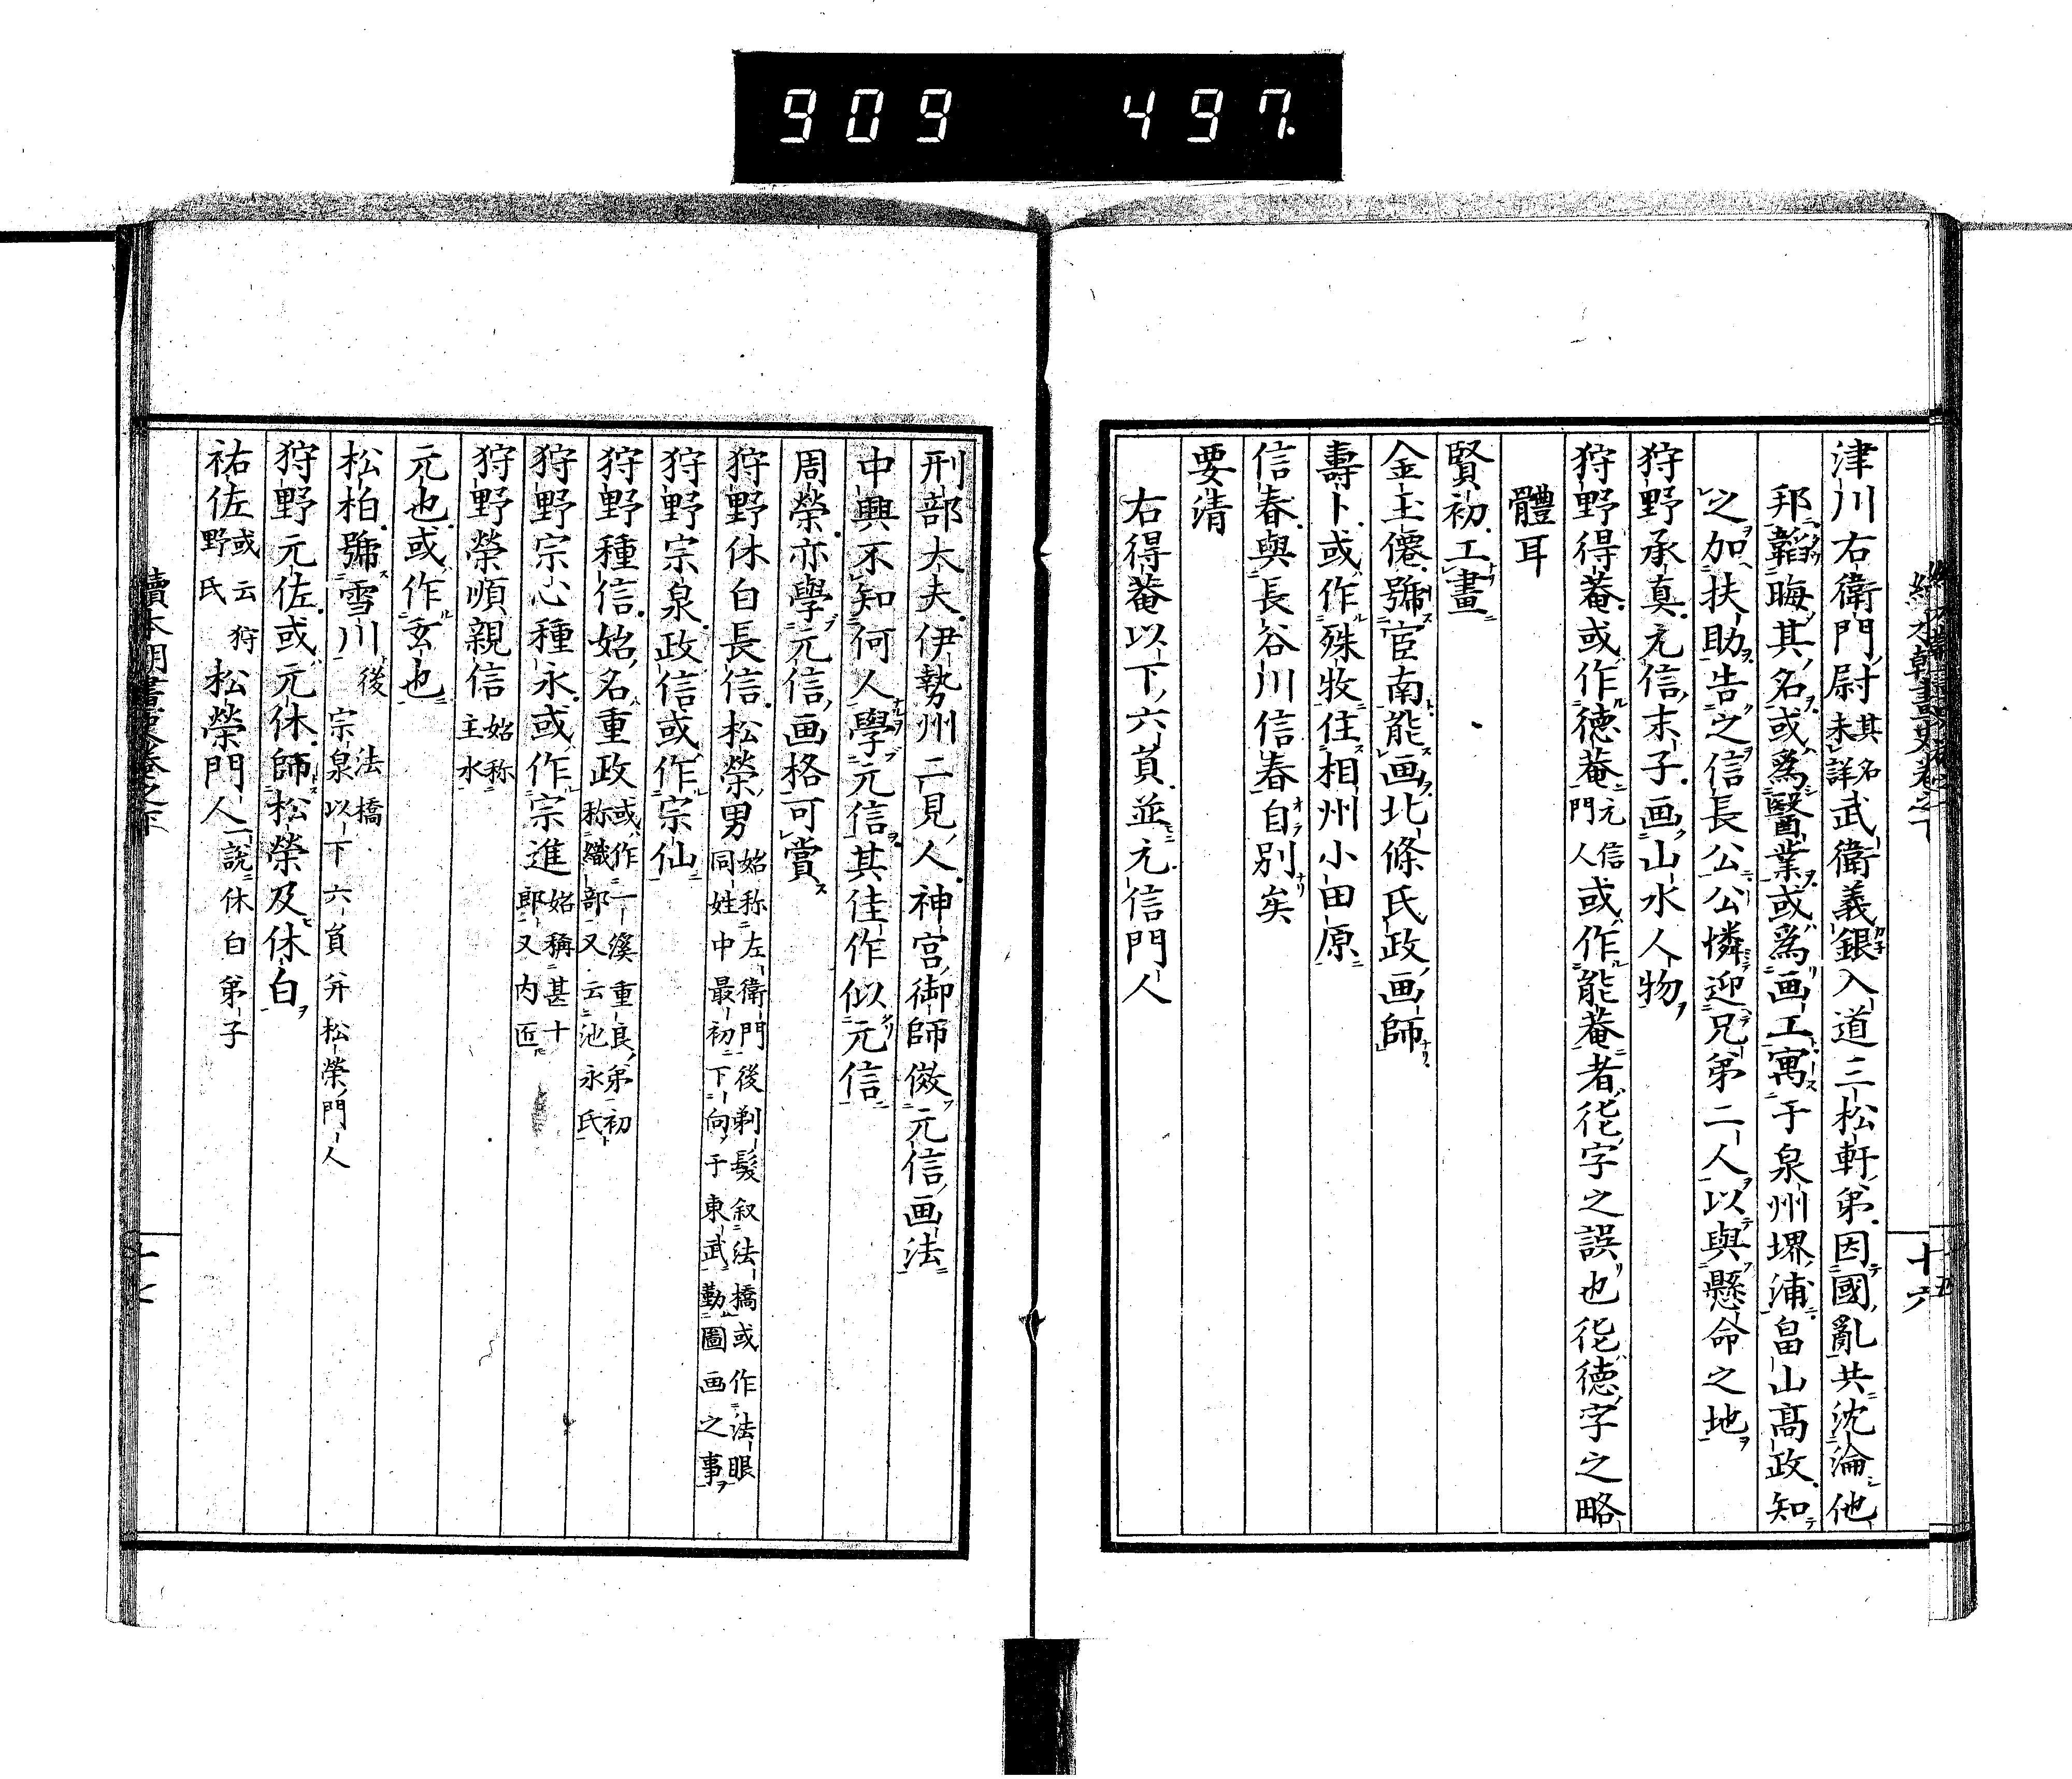 909 497.
津川右衛門尉其名未詳武衛義銀入道三松軒弟因國亂共沈淪他
邦韜晦其名或爲醫業或爲画工寓于泉州堺浦畠山高政知
之加扶助告之信長公公憐迎兄弟二人以與懸命之地
狩野承真元信末子画山水人物
狩野得菴或作徳菴元信門人或作能菴者㐾字之誤也㐾徳字之略
體耳
賢初工畫
金玉僊號宦南能画北條氏政画師
壽卜或作殊牧住相州小田原
信春與長谷川信春自別矣
要清
右得菴以下六員並元信門人
十六
刑部太夫伊勢州二見人神宮御師倣元信画法
中興不知何人學元信其佳作似元信
周榮亦學元信画格可賞
狩野休白長信松榮男始称左衛門後剃髮叙法橋或作法眼同姓中最初下向于東武勤圖画之事
狩野宗泉政信或作宗仙
狩野種信始名重政或作一溪重良弟初称織部又云池永氏
狩野宗心種永或作宗進始稱甚十郎又内匠
狩野榮順親信始称主水
元也或作玄也
松柏號雪川後法橋宗泉以下六員并松榮門人
狩野元佐或元休師松榮及休白
祐佐或云狩野氏松榮門人一説休白弟子
續本朝畫史卷之下
十七